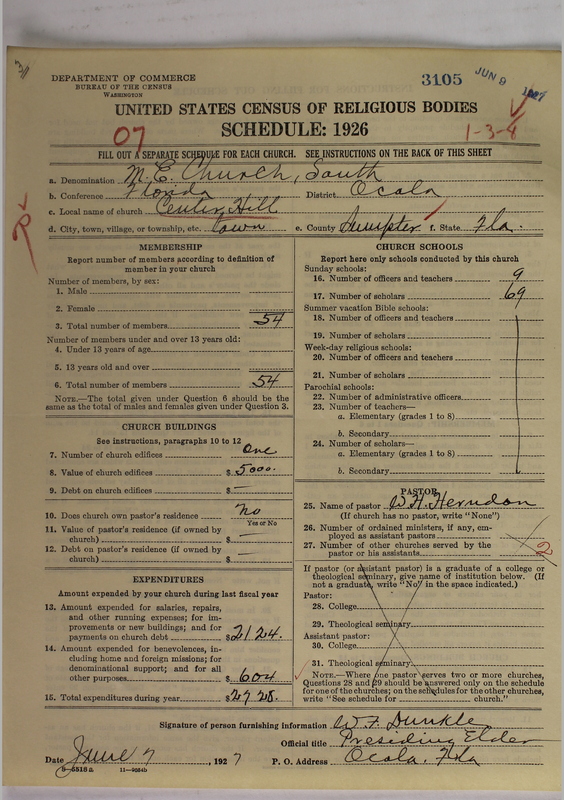 DEPARTMENT OF COMMERCE
BUREAU OF THE CENSUS
WASHINGTON
3105 JUN 9 1927
UNITED STATES CENSUS OF RELIGIOUS BODIES
SCHEDULE: 1926
07
1-3-4
FILL OUT A SEPARATE SCHEDULE FOR EACH CHURCH. SEE INSTRUCTIONS ON THE BACK OF THIS SHEET
a. Denomination M. E. Church, South
b. Conference Florida District Ocala
c. Local name of church Center Hill
d. City, town, village, or township, etc. town e. County Sumpter f. State Fla.
MEMBERSHIP
Report number of members according to definition of
member in your church
Number of members, by sex:
1. Male
2. Female
3. Total number of members 54
Number of members under and over 13 years old:
4. Under 13 years of age
5. 13 years old and over
6. Total number of members 54
NOTE.—The total given under Question 6 should be the
same as the total of males and females given under Question 3.
CHURCH BUILDINGS
See instructions, paragraphs 10 to 12
7. Number of church edifices One
8. Value of church edifices $5000.
9. Debt on church edifices $
10. Does church own pastor's residence No
Yes or No
11. Value of pastor's residence (if owned by
church) $ —
12. Debt on pastor's residence (if owned by
church) $ —
EXPENDITURES
Amount expended by your church during last fiscal year
13. Amount expended for salaries, repairs,
and other running expenses; for im-
provements or new buildings; and for
payments on church debt $2124.
14. Amount expended for benevolences, in-
cluding home and foreign missions; for
denominational support; and for all
other purposes $604
15. Total expenditures during year $2728.
CHURCH SCHOOLS
Report here only schools conducted by this church
Sunday schools:
16. Number of officers and teachers 9
17. Number of scholars 69
Summer vacation Bible schools:
18. Number of officers and teachers
19. Number of scholars
Week-day religious schools:
20. Number of officers and teachers
21. Number of scholars
Parochial schools:
22. Number of administrative officers
23. Number of teachers—
a. Elementary (grades 1 to 8)
b. Secondary
24. Number of scholars—
a. Elementary (grades 1 to 8)
b. Secondary
PASTOR
25. Name of pastor W. H. Herndon
(If church has no pastor, write "None")
26. Number of ordained ministers, if any, em-
ployed as assistant pastors
27. Number of other churches served by the
pastor or his assistants 2
If pastor (or assistant pastor) is a graduate of a college or
theological seminary, give name of institution below. (If
not a graduate, write "No" in the space indicated.)
Pastor:
28. College
29. Theological seminary
Assistant pastor:
30. College
31. Theological seminary
NOTE.—Where one pastor serves two or more churches,
Questions 28 and 29 should be answered only on the schedule
for one of the churches; on the schedules for the other churches,
write "See schedule for church."
Signature of person furnishing information W. F. Dunkle
Official title Presiding Elder
Date June 7, 1927 P. O. Address Ocala. Fla
11—9684b